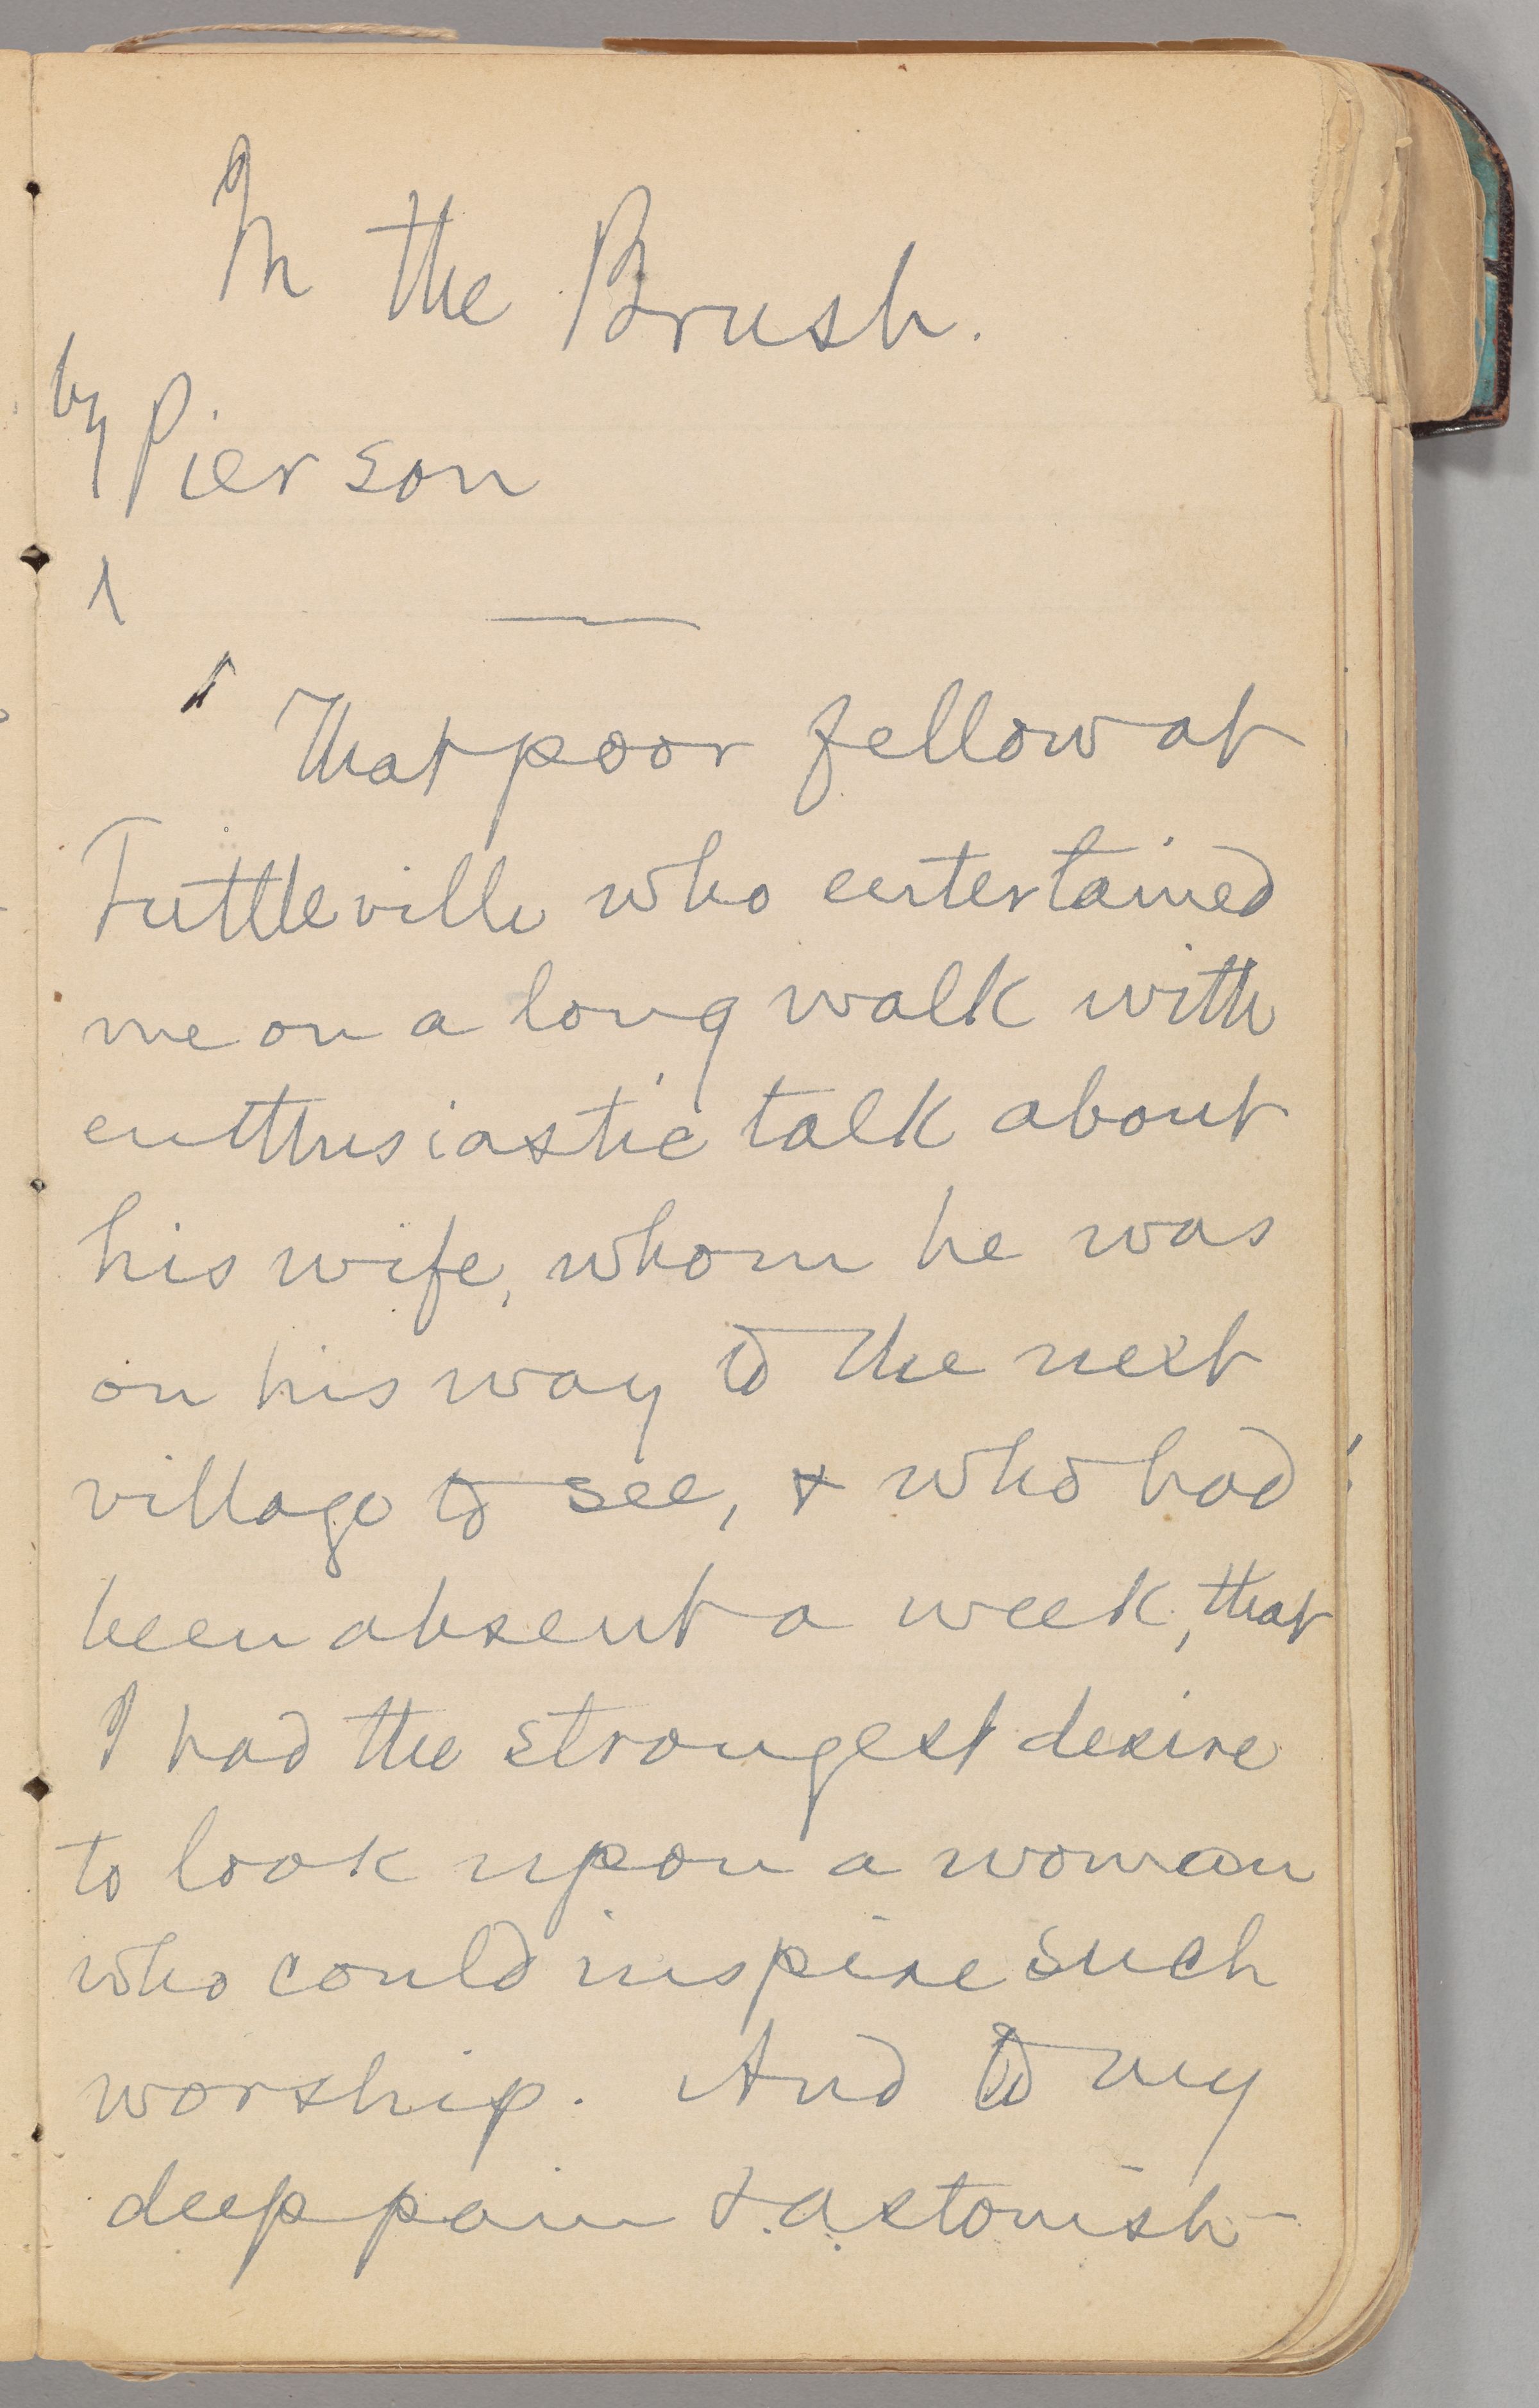 In the Brush.
by Pierson
That poor fellow at
Tuttleville who entertained
me on a long walk with
enthusiastic talk about
his wife, whom he was
on his way to the next
village to see, & who had
been absent a week, that
I had the strongest desire
to look upon a woman
who could inspire such
worship. And to my
deep pain & astonish-